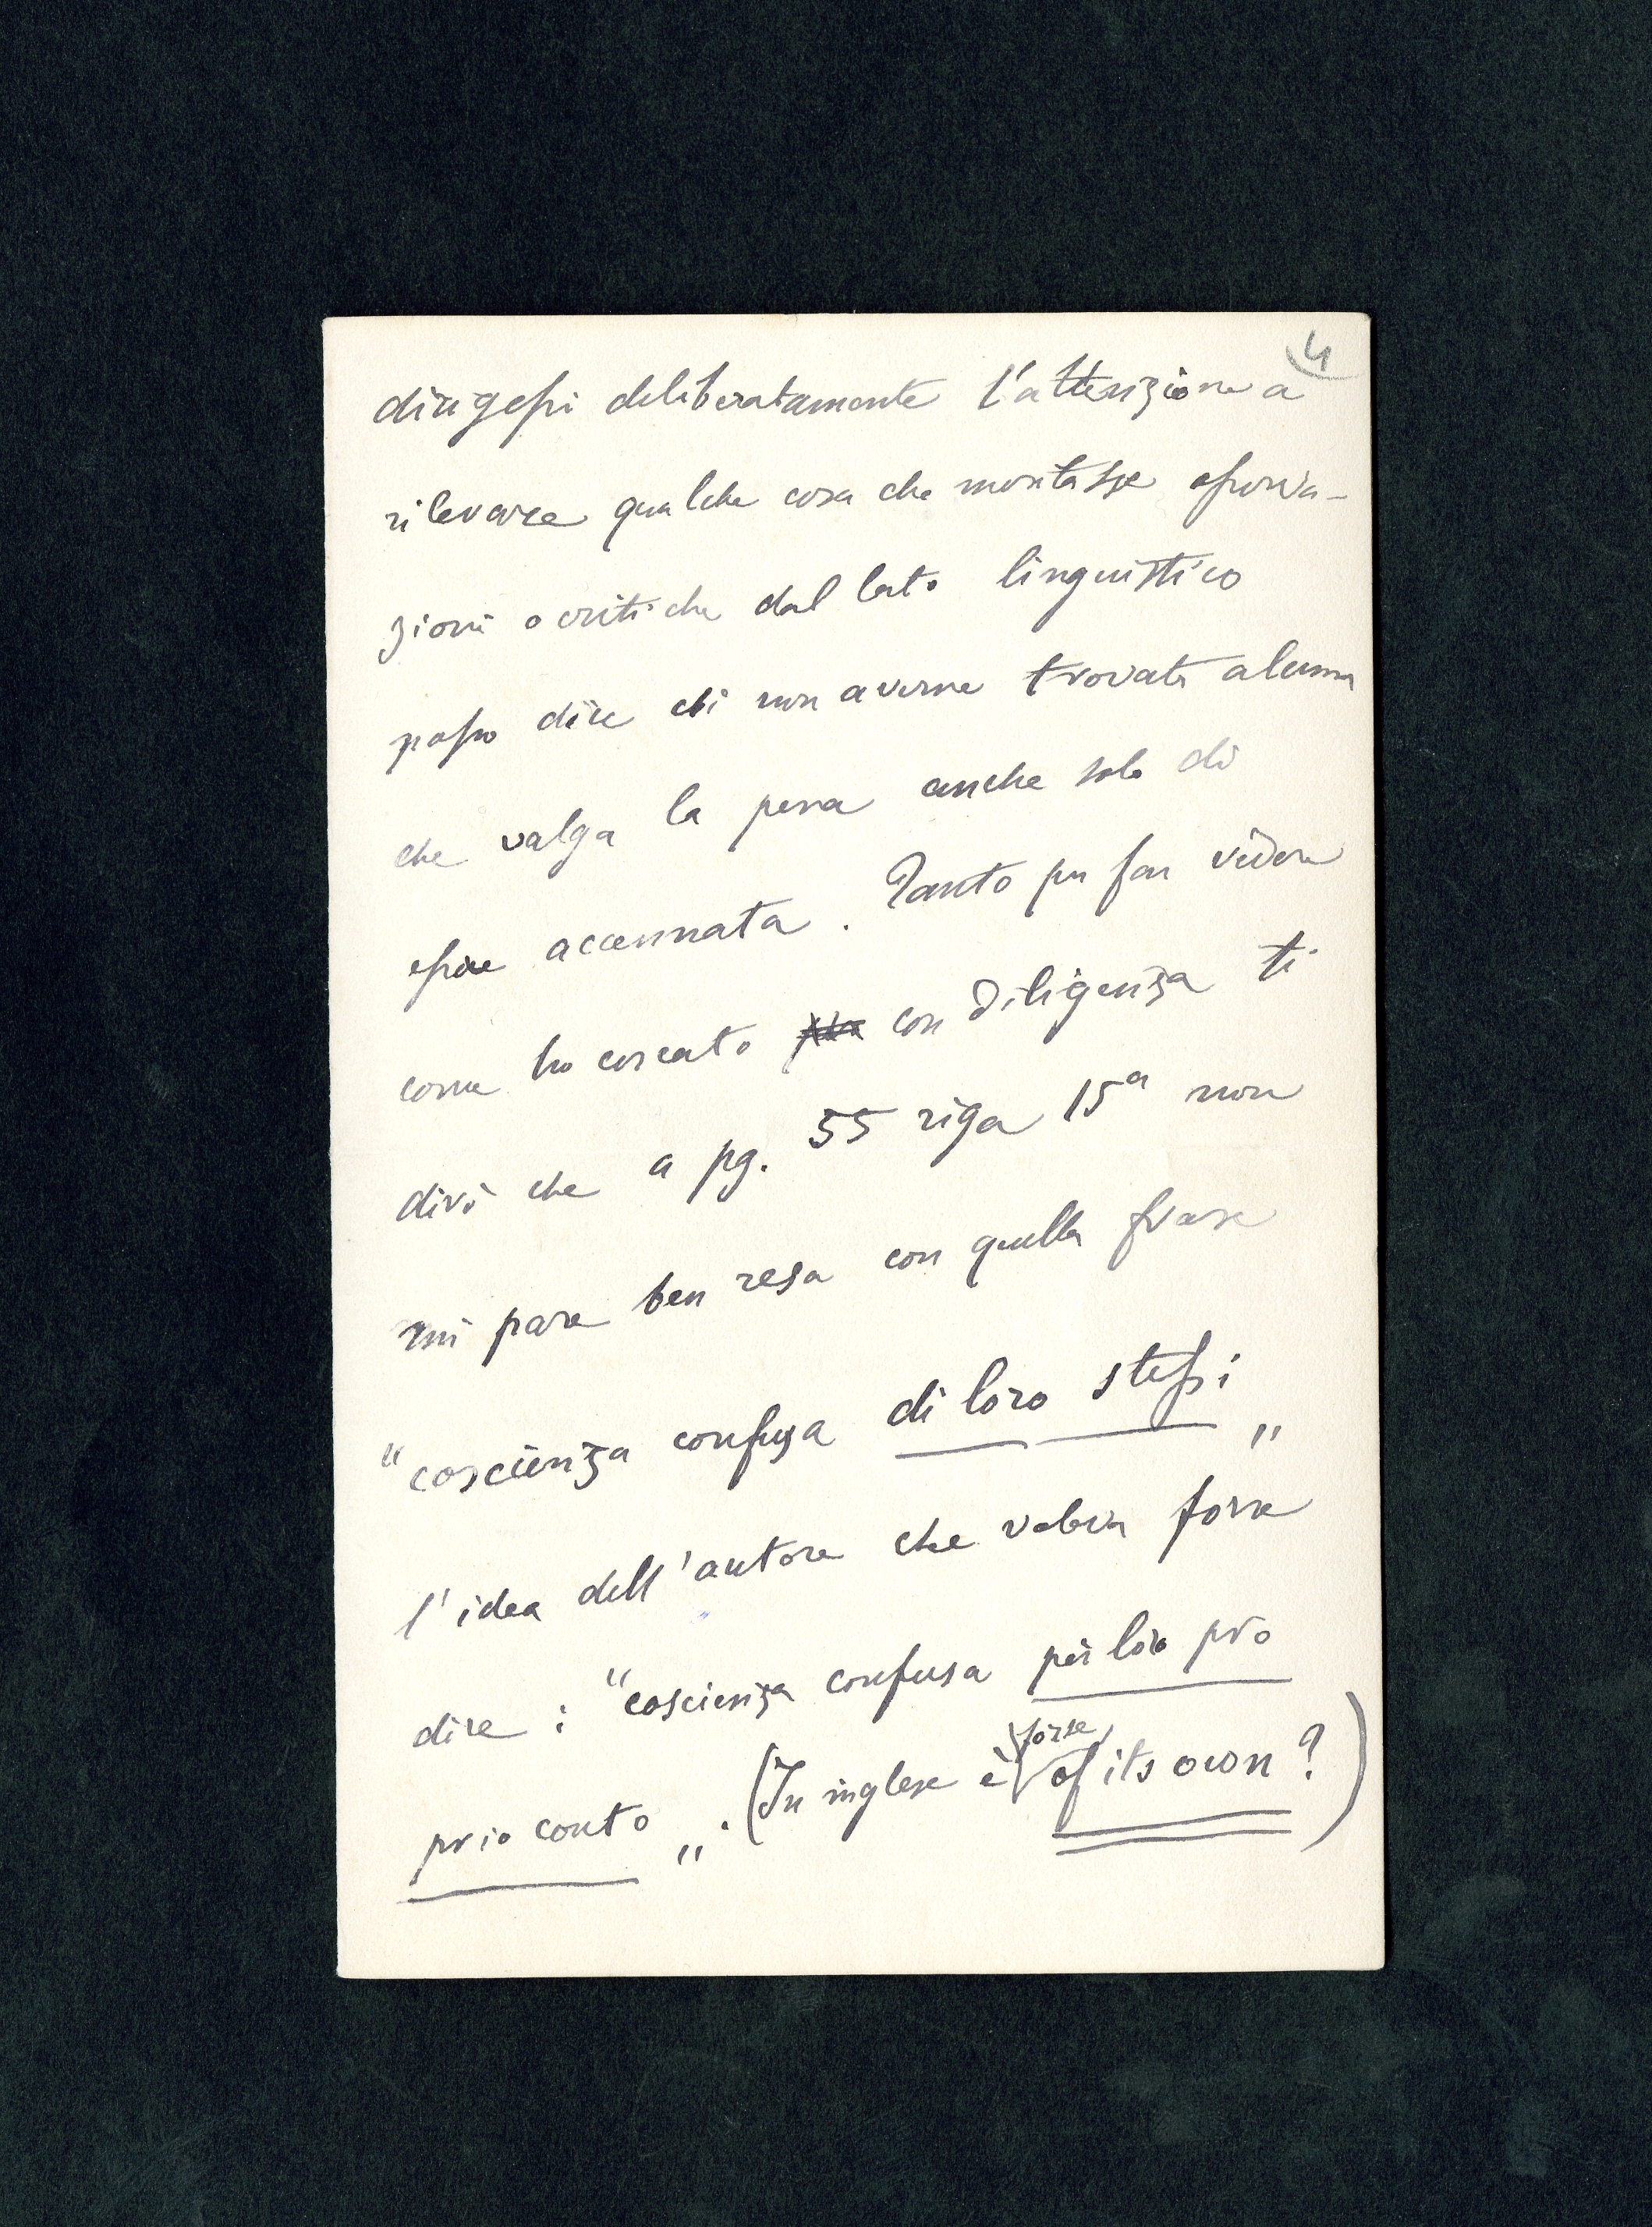 4
dirigessi deliberatamente l'attenzione a
rilevare qualche cosa che montasse osserva-
zioni o critiche dal lato linguistico
posso dire di non averne trovata alcuna
che valga la pena anche solo di
essere accennata. Tanto per far vedere
come ho cercato con diligenza ti
dirò che a pg. 55 riga 15a non
mi pare ben resa con quella frase
"coscienza confusa di loro stessi"
l'idea dell'autore che voleva forse
dire: "coscienza confusa per loro pro
prio conto". (In inglese è forse of its own?)